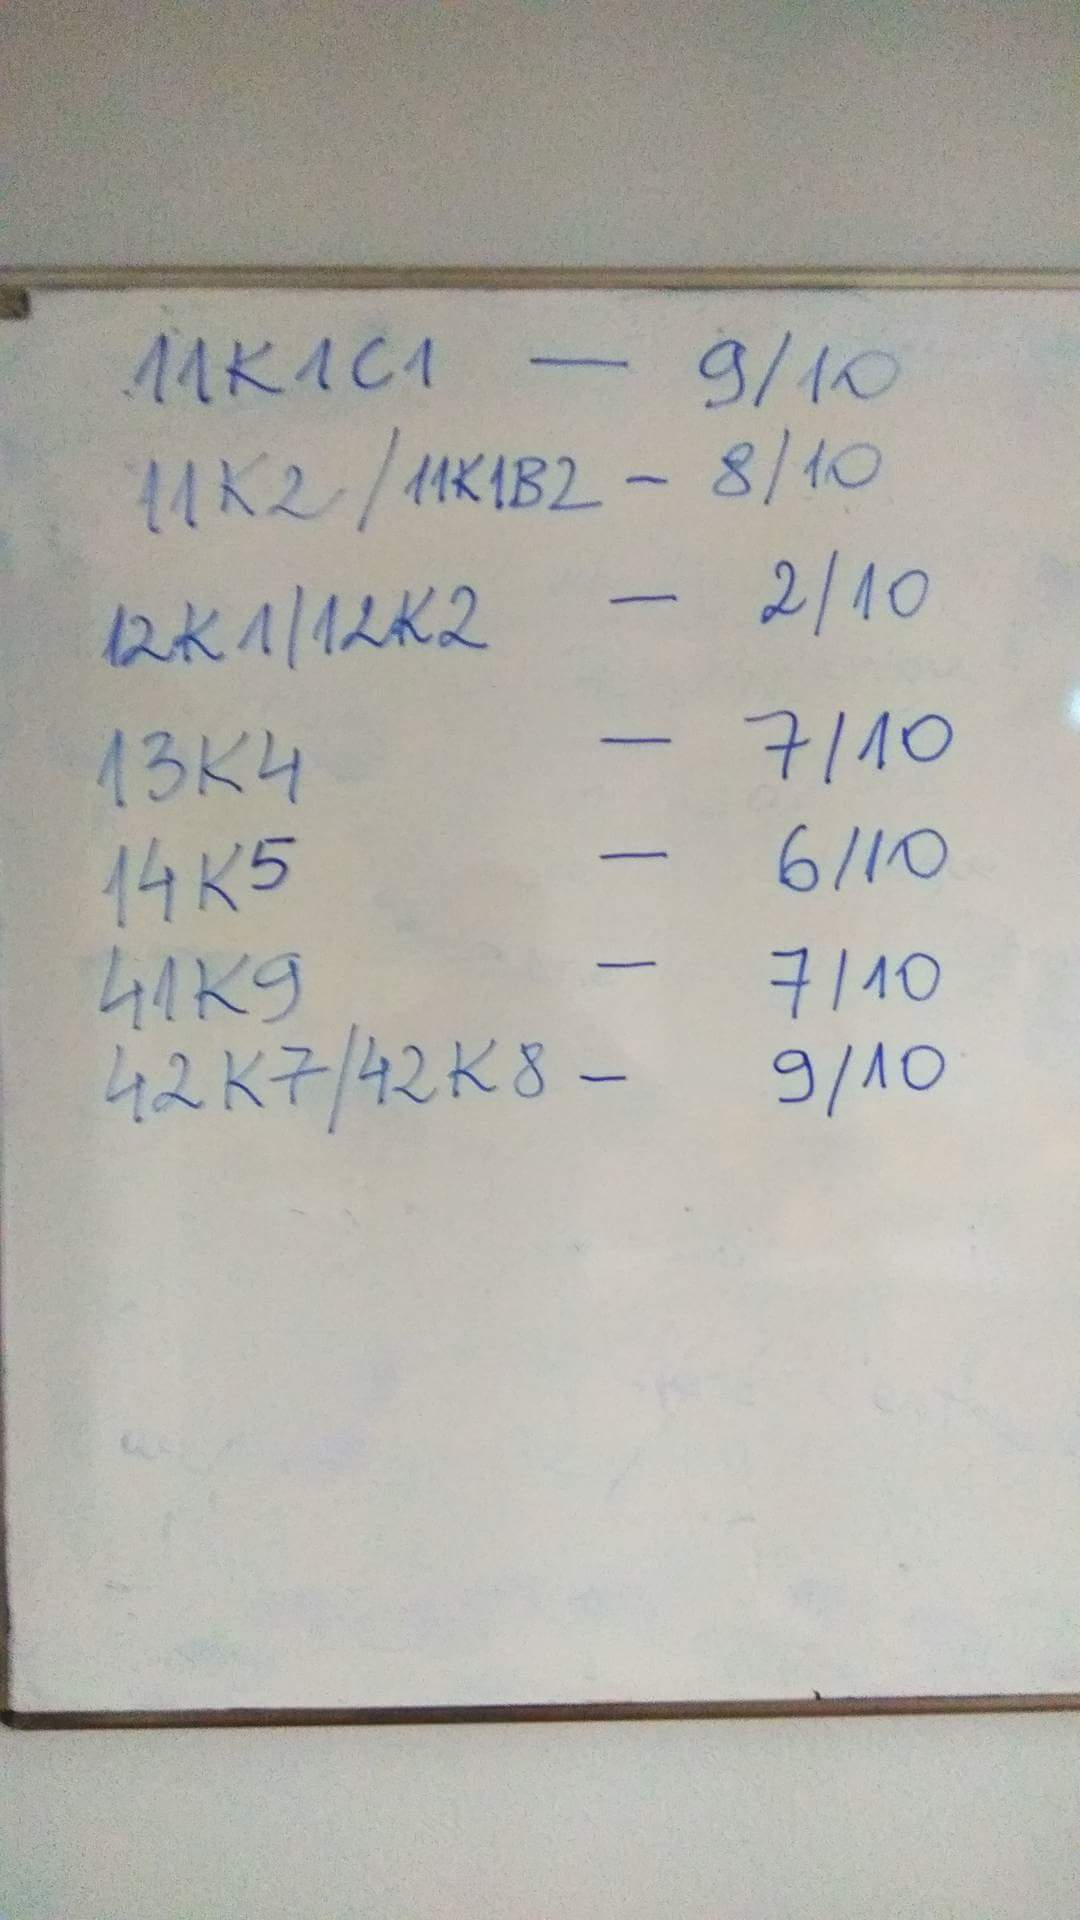 11K1C1 — 9/10
11K2/11K1B2 - 8/10
12K1/12K2 - 2/10
13K4 - 7/10
14K5 - 6/10
41K9 - 7/10
42K7/42K8 - 9/10